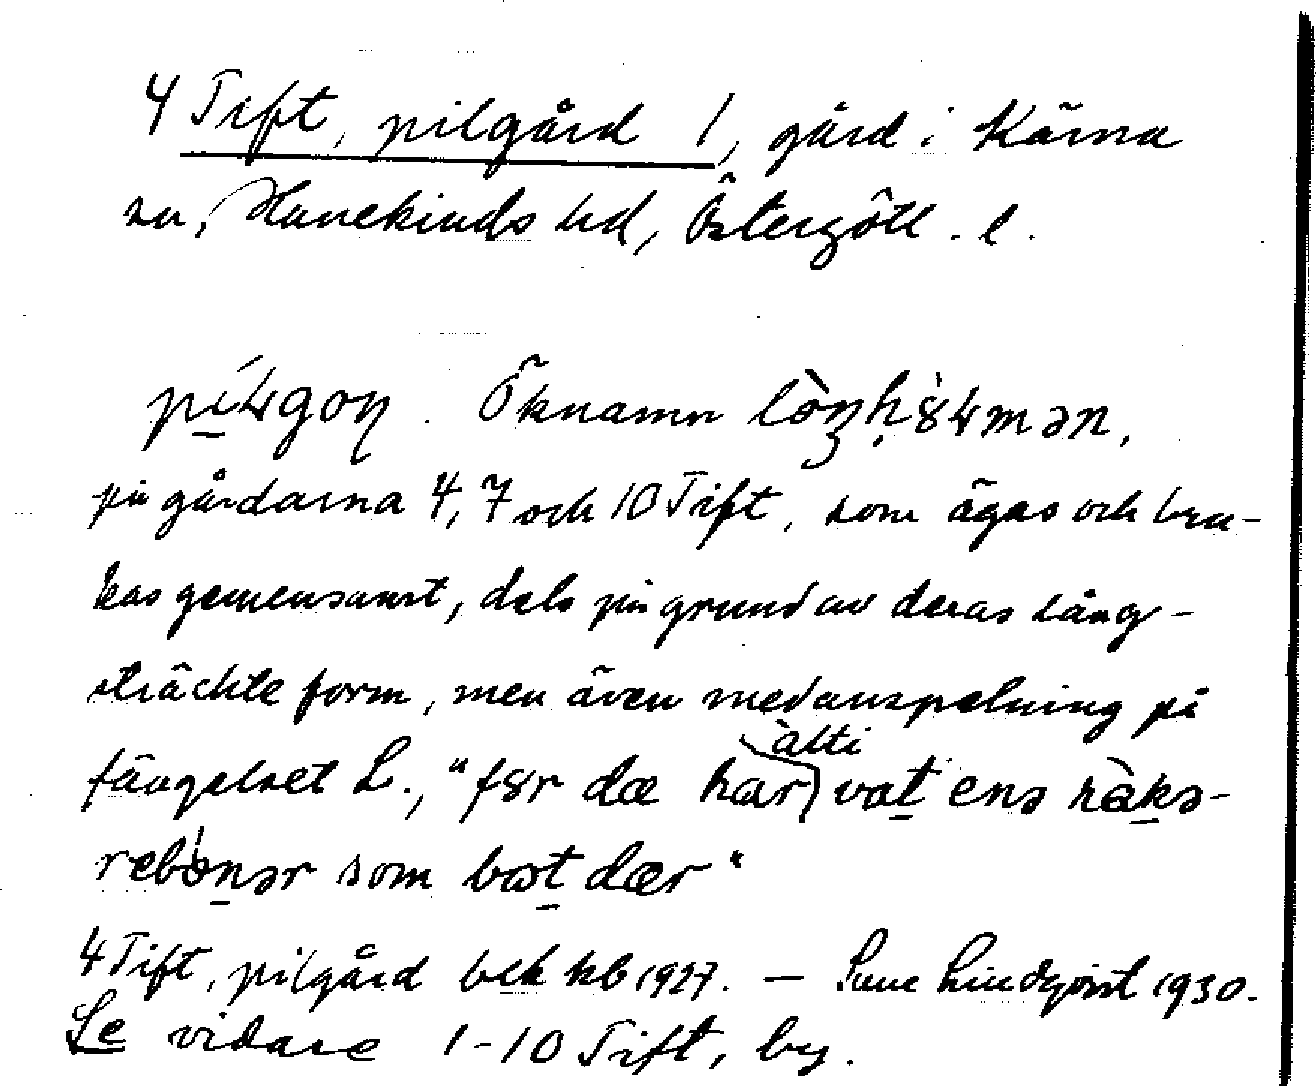 4 Tift, pilgård 1, gård i Kärna
sn, Hanekinds hd, Östergötl. l.
Öknamn
på gårdarna 4, 7 och 10 Tift, som ägas och bru-
kas gemensamt, dels på grund av deras lång-
sträckte form, men även med anspelning på
älti
fängelset L., "fɤr dæ har vat̠ enə
som bøt̠ dær"
4 Tift, pilgård bek kb 1927. – Sune Lindqvist 1930.
Se vidare 1-10 Tift, by.